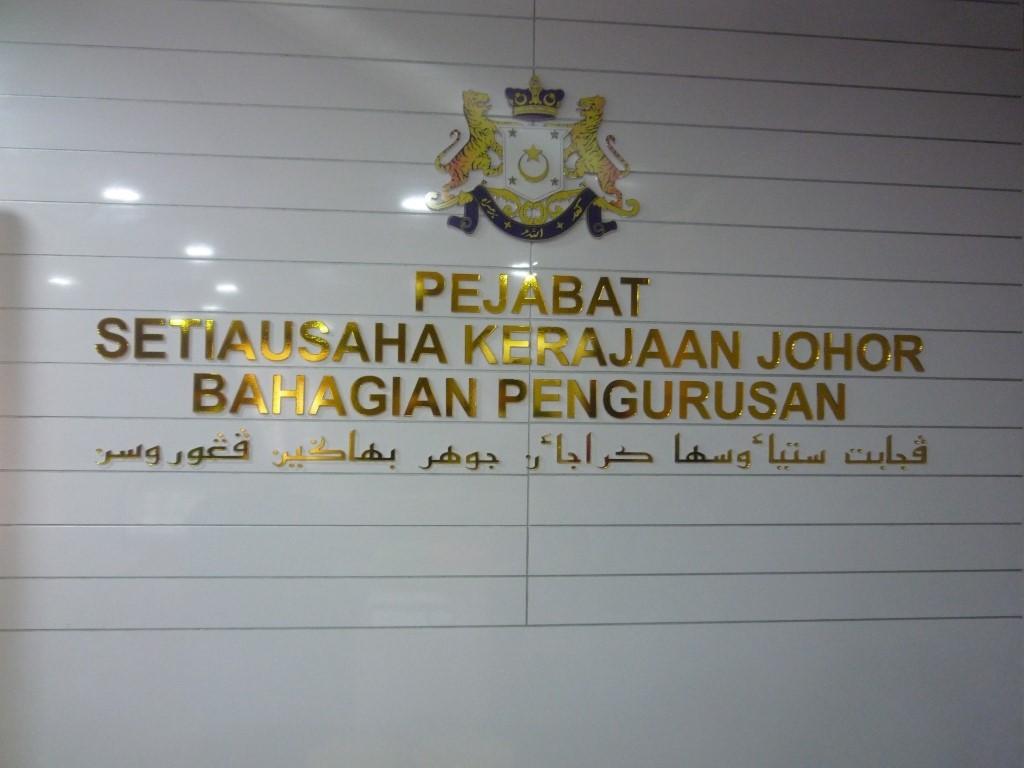 PEJABAT
SETIAUSAHA KERAJAAN JOHOR
BAHAGIAN PENGURUSAN
ڤجابت ستياءوسها كراجاءن جوهر بهاݢين ڤڠوروسن